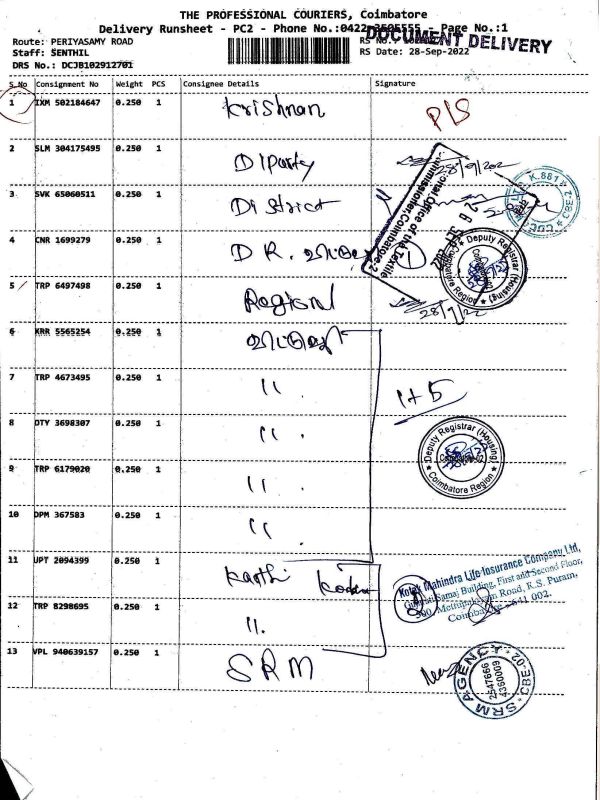 THE PROFESSIONAL COURIERS, Coimbatore
Delivery Runsheet - PC2 - Phone No.:0422 3505555 - Page No.:1
DOCUMENT DELIVERY
Route: PERIYASAMY ROAD
RS No.:
Staff: SENTHIL
RS Date: 28-Sep-2022
DRS No.: DCJB102912701
S No Consignment No Weight PCS Consignee Details Signature
1 IXM 502184647 0.250 1 Krishnan P/S
2 SLM 304175495 0.250 1 Diparty
3 SVK 65060511 0.250 1 District
4 CNR 1699279 0.250 1 D R.
5 TRP 6497498 0.250 1 Regional
6 KRR 5565254 0.250 1
7 TRP 4673495 0.250 1 " 1+5
8 DTY 3698307 0.250 1 "
9 TRP 6179020 0.250 1 "
10 DPM 367583 0.250 1 "
11 UPT 2094399 0.250 1 Karthi
12 TRP 8298695 0.250 1 "
13 VPL 940639157 0.250 1 SRM
Regional Office of the Textile
Commissioner, Coimbatore-2
K.881
CBE-2
Deputy Registrar (Housing)
Coimbatore Region
Deputy Registrar (Housing)
Coimbatore Region
Kotak Mahindra Life Insurance Company Ltd,
Gujarati Samaj Building, First and Second Floor,
Mettupalayam Road, R.S. Puram,
Coimbatore - 641 002.
SRM AGENCY
CBE-02
2547666
4360009